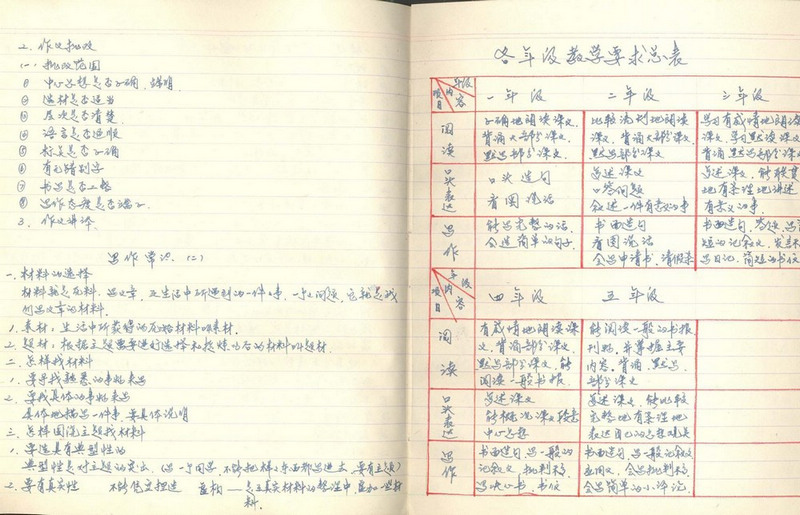 2. 作文批改
(一) 批改范围
① 中心思想是否正确、鲜明
② 选材是否适当
③ 层次是否清楚
④ 语言是否通顺
⑤ 标点是否正确
⑥ 有无错别字
⑦ 书写是否工整
⑧ 写作态度是否端正
3. 作文讲评
写作常识 (二)
一. 材料的选择
材料就是原料
创写文章的材料.
1. 素材: 生活中所获得的原始材料叫素材.
2. 题材: 根据主题需要进行选择和提炼以后的材料叫题材.
二. 怎样找材料
1. 要寻找熟悉的事起来写
2. 要找具体的事起来写
具体地描写一件事, 要具体说明
三. 怎样围绕主题找材料
1. 要选具有典型性的
典型性是对主题的突出.
2. 要有真实性 不能凭空捏造 虚构 — 是在真实材料的整理中,
料.
各年级教学要求总表
年级
内容
项目
一年级
二年级
三年级
阅读
正确地朗读课文. 背诵大部分课文. 默写部分课文
比较流利地朗读课文. 背诵大部分课文 默写部分课文
学习有感情地朗读课文. 学习默读课文 背诵默写部分课文
口头表达
口头造句
看图说话
复述课文
口答问题
叙述一件有意义的事
复述课文.
地有条理性地讲述
有意义的事.
写作
能写完整的话.
会造简单的句子
书面造句
看图说话
会写申请书. 请假条
书面造句.
短的记叙文.
写日记. 简短的书信
年级
内容
项目
四年级
五年级
阅读
有感情地朗读课文. 背诵部分课文. 默写部分课文. 能阅读一般书报
能阅读一般的书报刊物. 并掌握主要内容. 背诵. 默写部分课文
口头表达
复述课文
能概况课文段意
中心思想
复述课文. 能比较
完整地有条理地
表达自己的思想观点
写作
书面造句. 写一般的
记叙文. 批判稿.
写决心书. 书信
书面造句. 写一般记叙文
应用文. 会写批判稿.
会写简单的小评论.